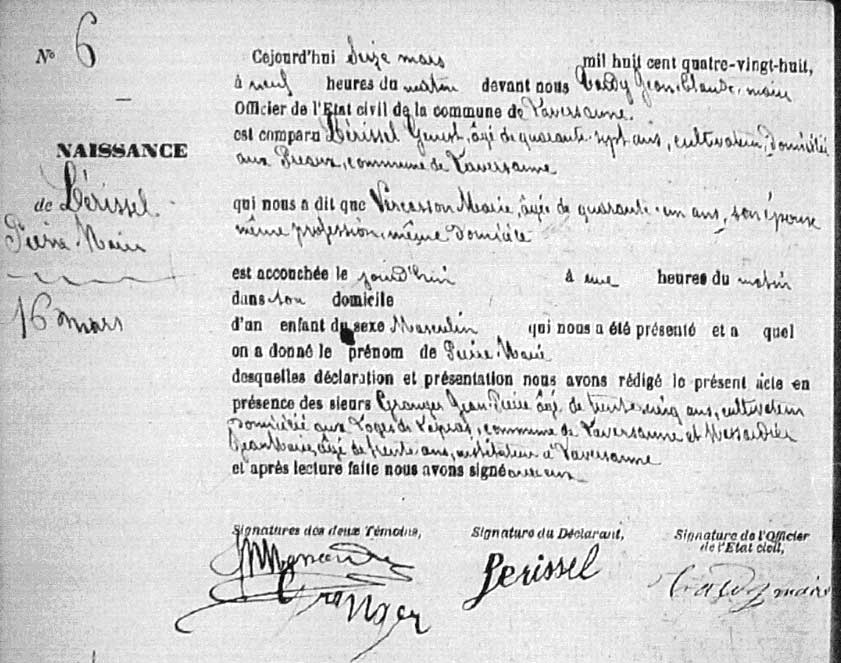 No 6
NAISSANCE
de Périssel
Pierre Marie
16 mars
Cejourd'hui seize mars mil huit cent quatre-vingt-huit,
à neuf heures du matin devant nous Tardy Jean Claude, maire
Officier de l'Etat civil de la commune de Taversanne.
est comparu Périssel Genest, âgé de quarante-sept ans, cultivateur, domicilié
aux Préaux, commune de Taversanne
qui nous a dit que Vercasson Marie, âgée de quarante-un ans, son épouse
même profession, même domicile
est accouchée le jourd'hui à une heures du matin
dans son domicile
d'un enfant du sexe Masculin qui nous a été présenté et a quel
on a donné le prénom de Pierre Marie
desquelles déclaration et présentation nous avons rédigé le présent acte en
présence des sieurs Granger Jean Pierre âgé de trente-cinq ans, cultivateur
domicilié aux Loges de, commune de Taversanne et
Jean Marie, âgé de trente ans, instituteur à Taversanne
et après lecture faite nous avons signé avec eux
Signatures des deux Témoins,
Granger
Signature du Déclarant,
Perissel
Signature de l'Officier
de l'Etat civil,
Tardy maire